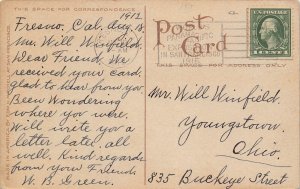 THIS SPACE FOR CORRESPONDENCE
1912
Fresno, Cal, Aug, 18.
Mr. Will Winfield.
Dear Friend. We
received your card,
glad to hear from you
Been Wondering
where you were.
Will write you a
letter later, all
well. Kind regards
from your Friend.
W. B. Green.
Post
Card
THIS SPACE FOR ADDRESS ONLY
EXPOSITION
IN SAN FRANCISCO
1915
1 CENT 1
Mr. Will Winfield.
Youngstown.
Ohio.
835 Buckeye Street